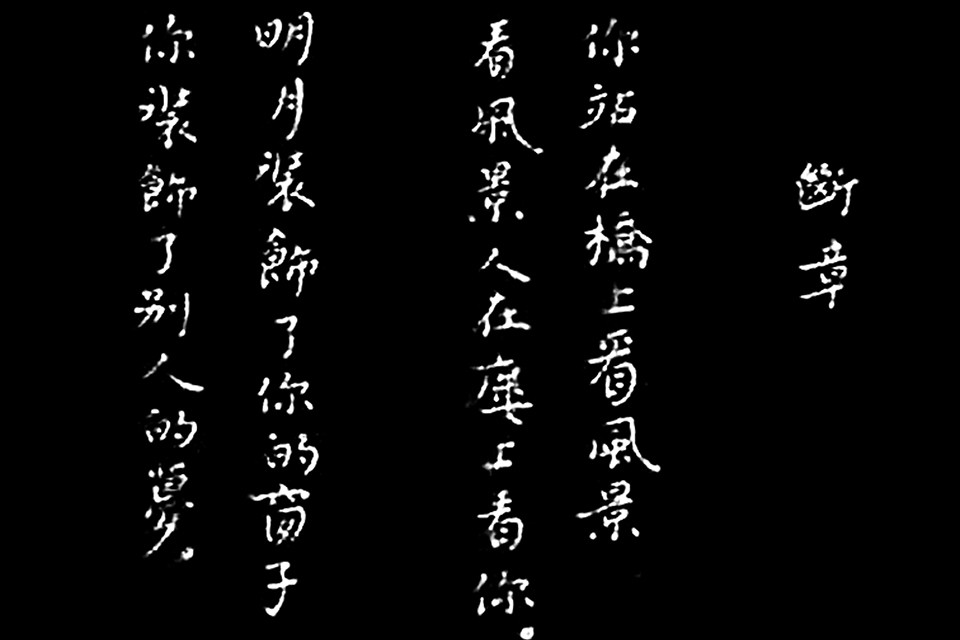 斷章
你站在橋上看風景
看風景人在樓上看你。
明月裝飾了你的窗子
你裝飾了別人的夢。